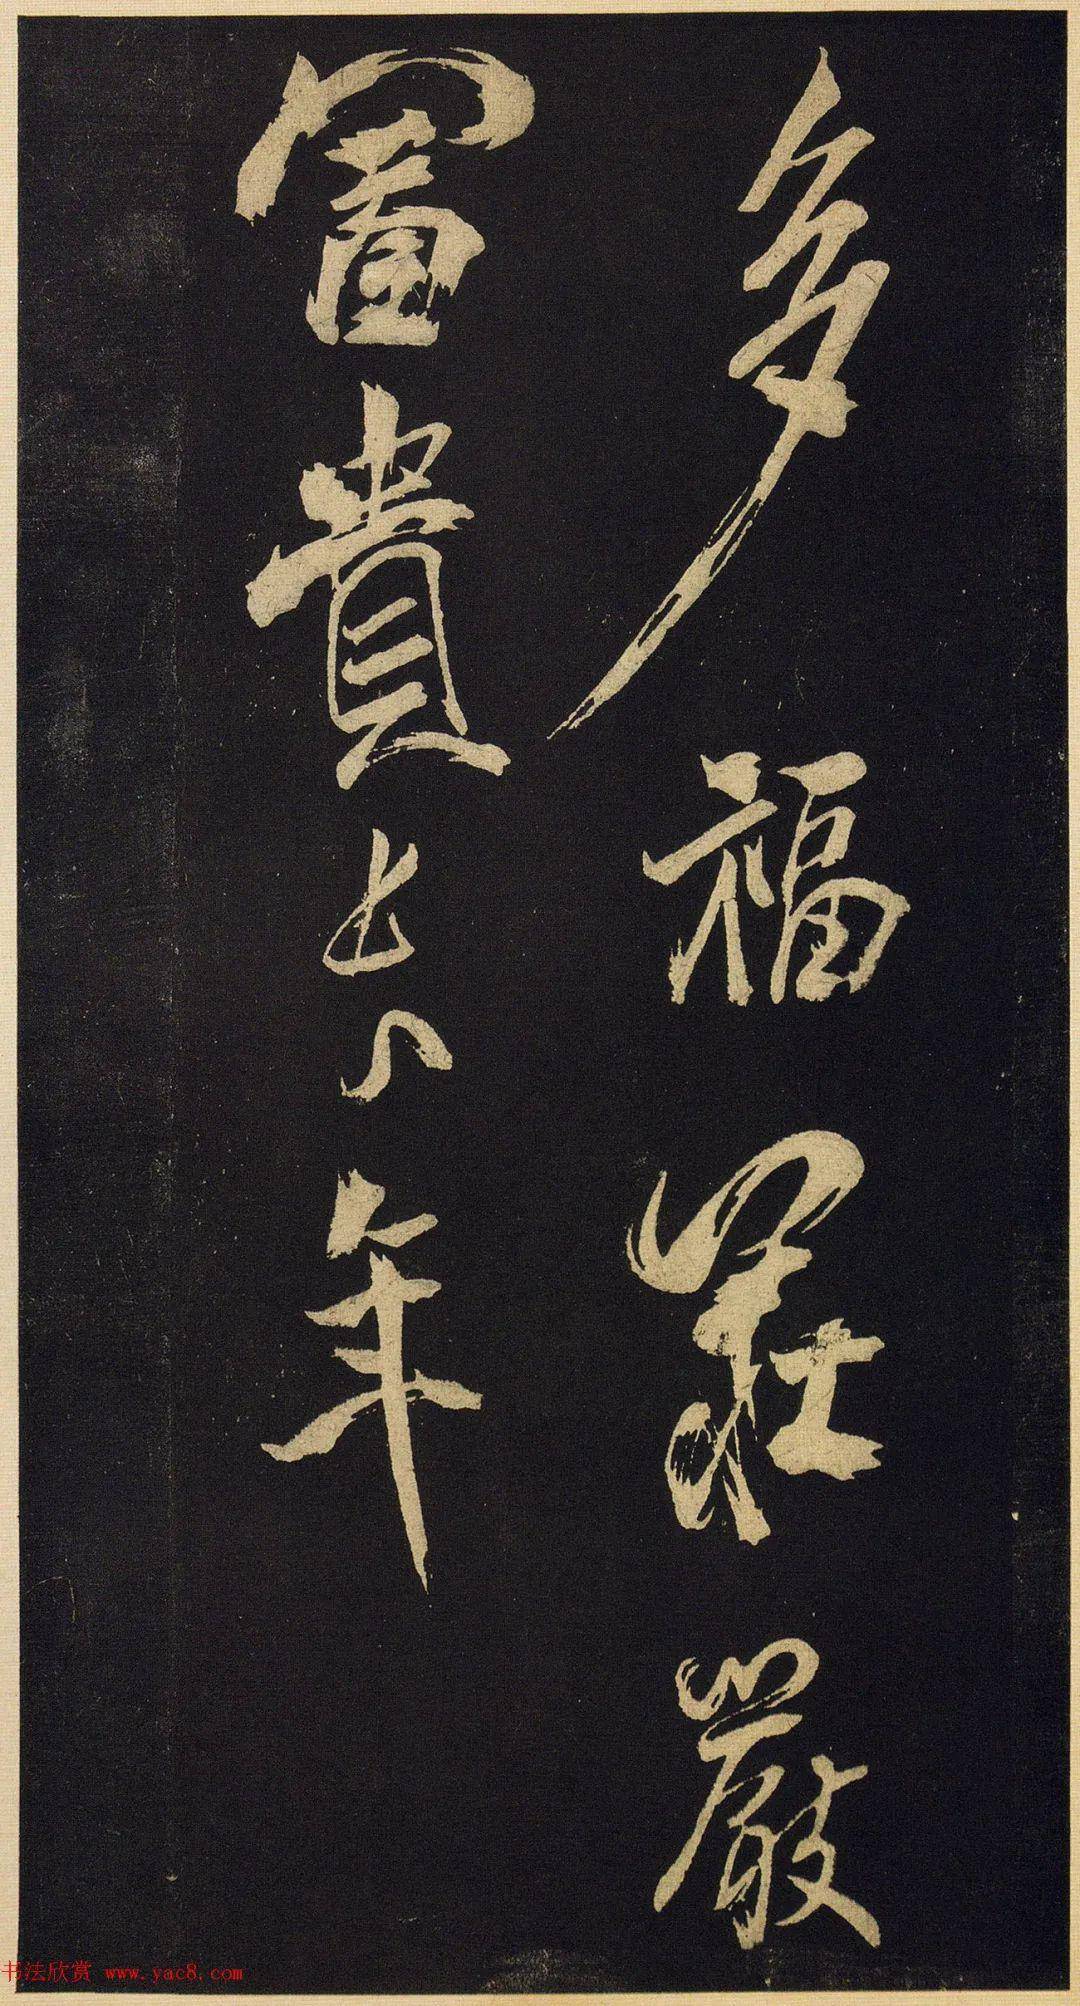 多福莊嚴
富貴長年
书法欣赏 www.yac8.com